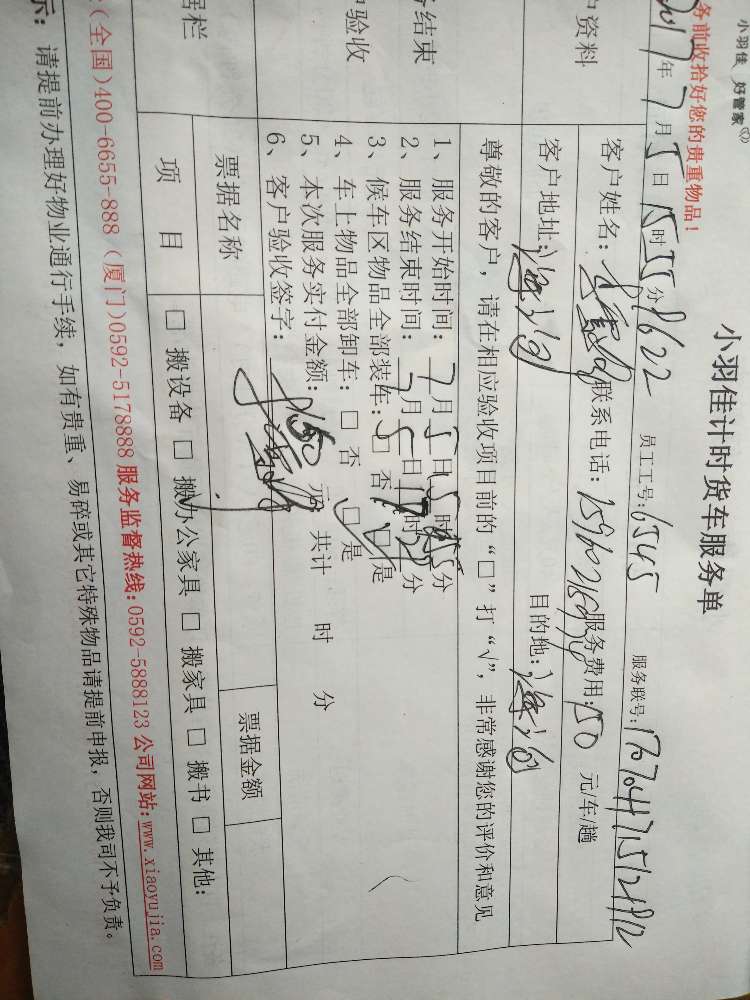 小羽佳 好管家
小羽佳计时货车服务单
务前收拾好您的贵重物品！
员工工号：6545 服务联号：
2017年7月5日15时55分
户资料
客户姓名： 联系电话： 服务费用：150 元/车/趟
客户地址：海沧 目的地：海沧
尊敬的客户，请在相应验收项目前的“□”打“√”，非常感谢您的评价和意见
务结束
户验收
1、服务开始时间：7月5日15时55分
2、服务结束时间：7月5日17时 分
3、候车区物品全部装车：□否 □是
4、车上物品全部卸车：□否 □是
5、本次服务实付金额：150元，共计 时 分
6、客户验收签字：
据栏
票据名称 票据金额
项 目 □ 搬设备 □ 搬办公家具 □ 搬家具 □ 搬书 □ 其他：
(全国)400-6655-888 (厦门)0592-5178888 服务监督热线：0592-5888123 公司网站：www.xiaoyujia.com
示：请提前办理好物业通行手续，如有贵重、易碎或其它特殊物品请提前申报，否则我司不予负责。